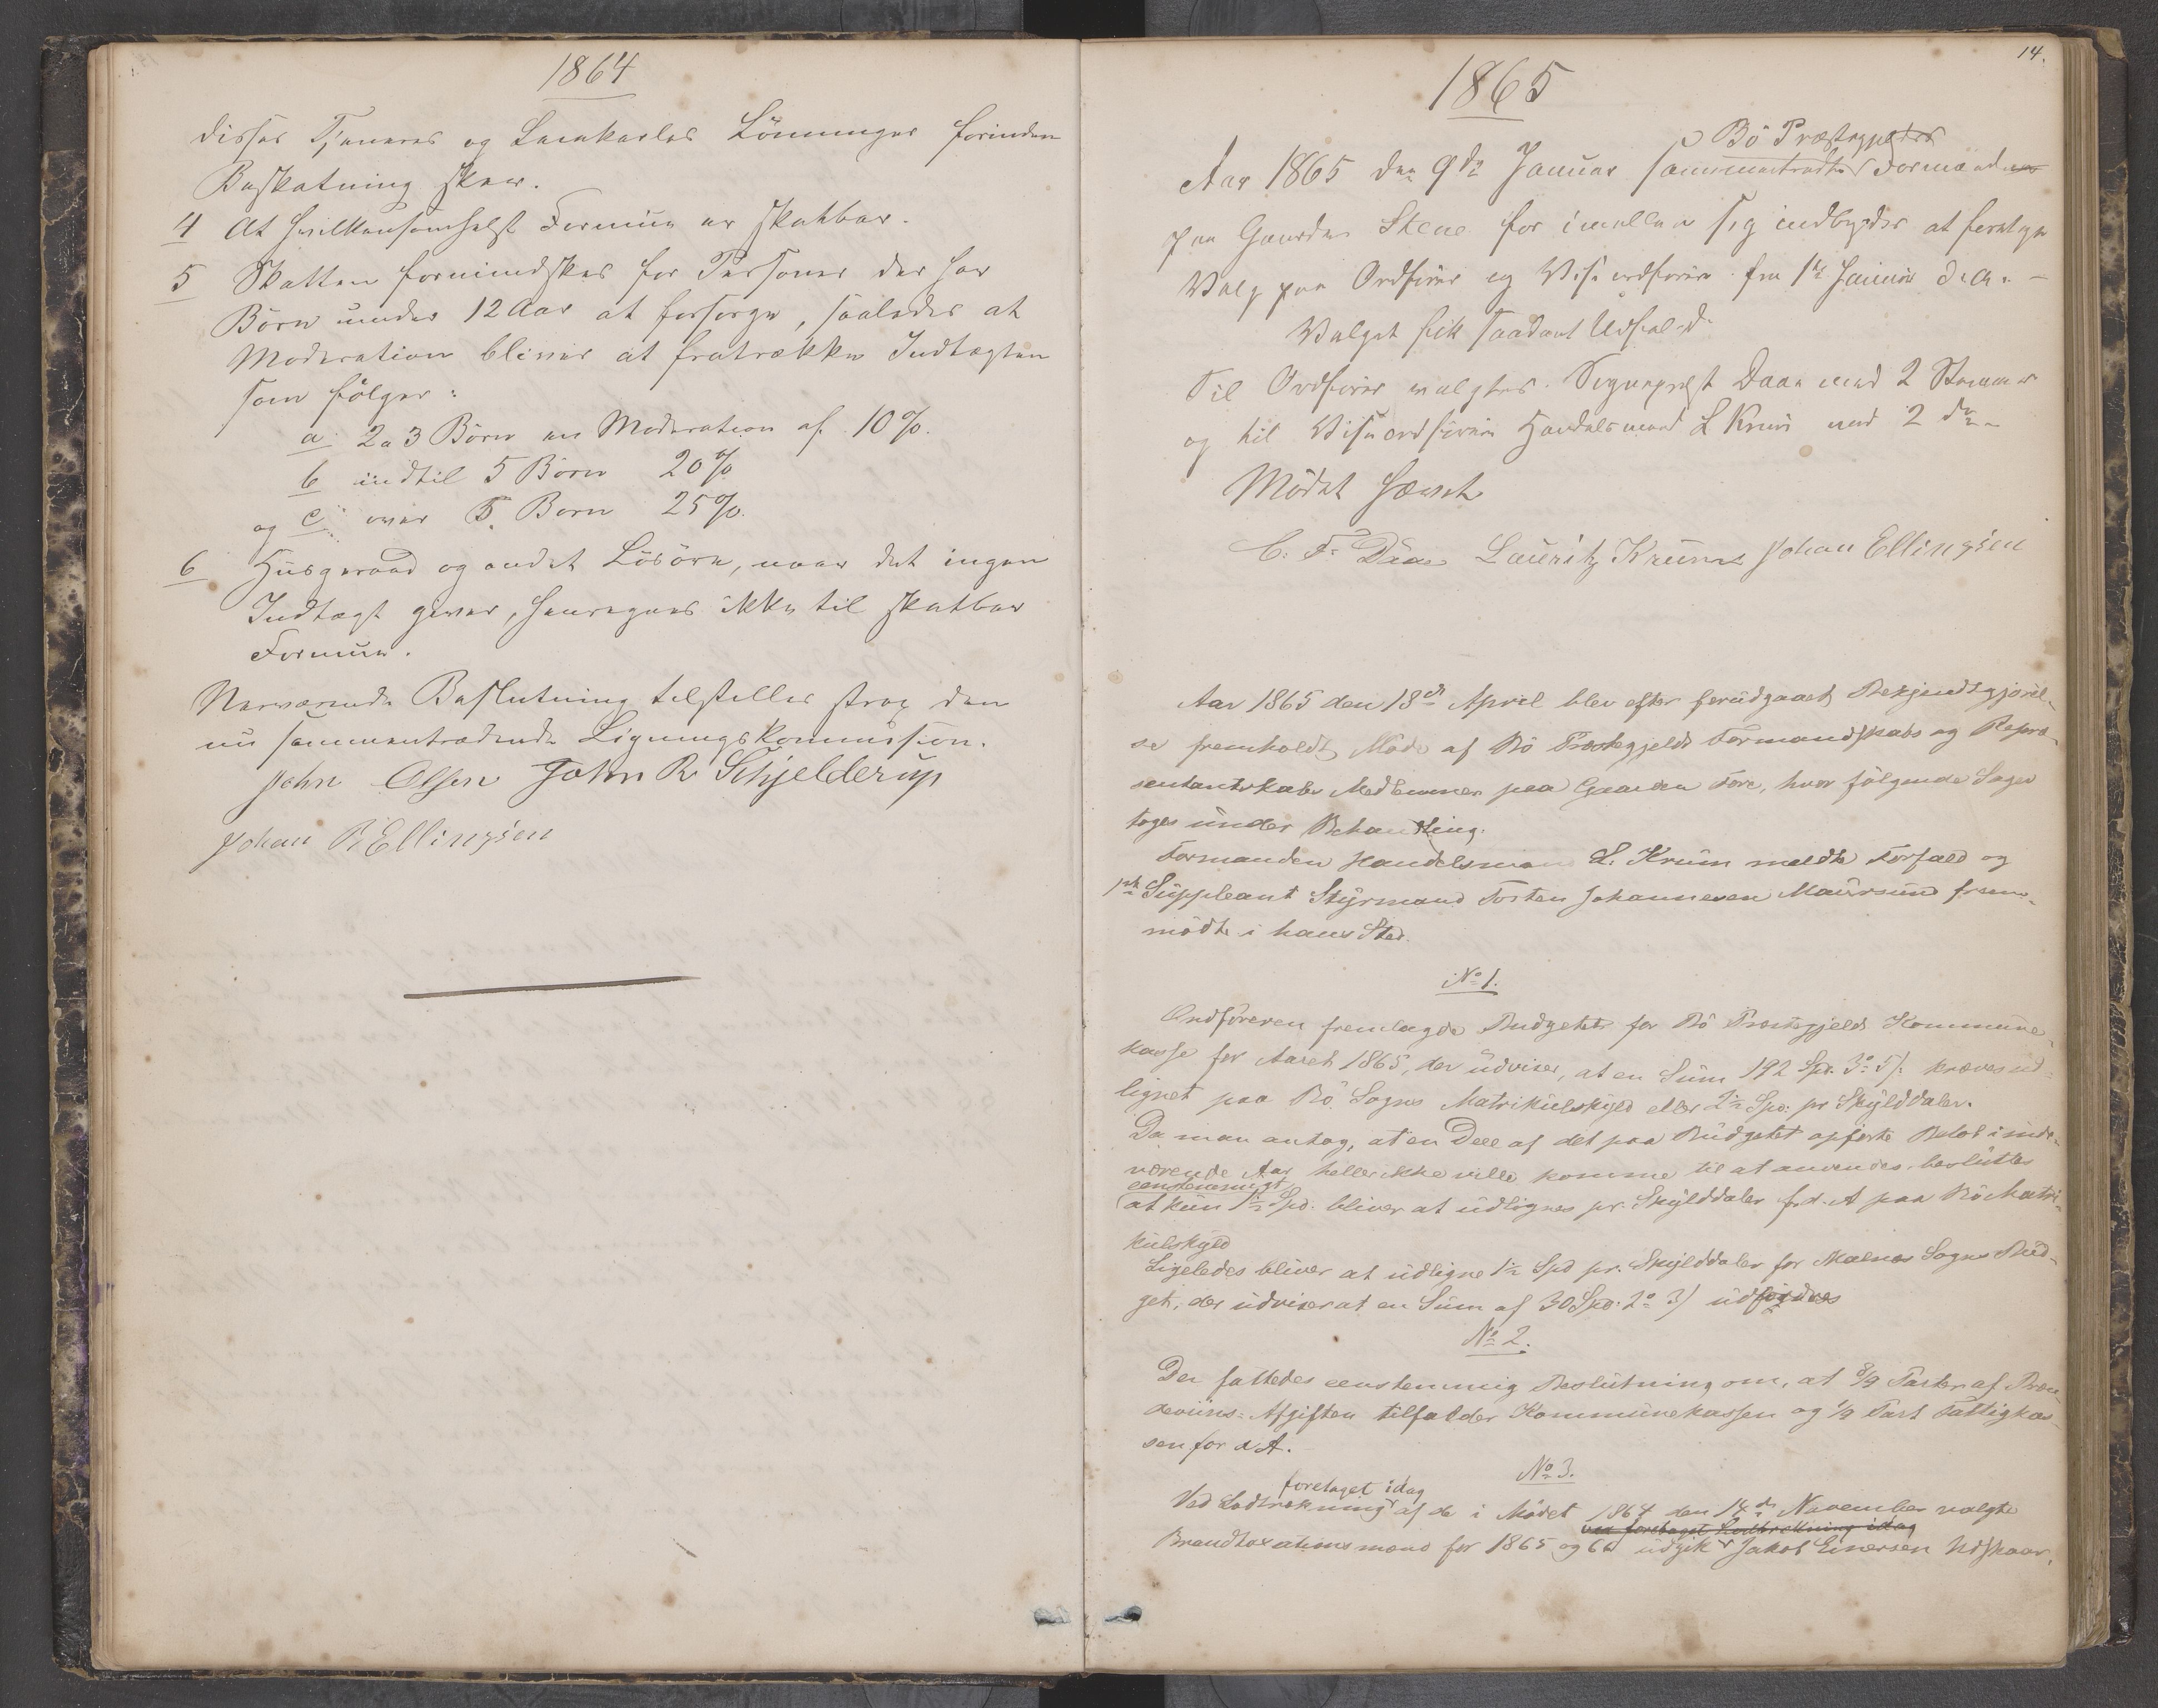 1864
disses Tjeneres og Leiekarles Lönninger forinden
Beskatning skeer.
4 At hvilkensomhelst Formue er skatbar.
5 Skatten formindskes for Personer der har
Börn under 12 Aar at forsörge, saaledes at
Moderation bliver at fratrække Indtægten
som fölger:
a 2 a 3 Börn en Moderation af 10%.
b indtil 5 Börn 20%
og c over 5 Börn 25%.
6 Husgeraad og andet Lösöre, naar det ingen
Indtægt giver, henregnes ikke til skatbar
Formue.
Nærværende Beslutning tilstilles strax den
nu sammentrædende Ligningskommission.
John Olsen John R Schjelderup
Johan P. Ellingsen
14.
1865
Bö Præstegjelds
Aar 1865 den 9de Januar sammentraadte Formænd
paa Gaarden Steene for imellem sig indbyrdes at foretage
Valg paa Ordförer og Viseordförer fra 1ste Januar d.A. –
Valget fik saadant Udfald
Til Ordförer valgtes Sogneprest Daae med 2 Stemmer
og til Viseordförer Handelsmand L Krum med 2 do
Mödet hævet
C. F. Daae Lauritz Krum Johan Ellingsen
Aar 1865 den 18de April blev efter forudgaaet Bekjendtgjörel-
se fremholdt Möde af Bö Præstegjelds Formandskabs og Repræ-
sentantskabs Medlemmer paa Gaarden Fore, hvor fölgende Sager
toges under Behandling.
Formanden Handelsmand L. Krum meldte Forfald og
1ste Suppleant Styrmand Torsten Johannesen Maursund frem-
mödte i hans Sted.
No 1.
Ordföreren fremlagde Budgetet for Bö Præstegjelds Kommune-
kasse for Aaret 1865, der udviser, at en Sum 192 Spd. 3 5/: kræves ud-
lignet paa Bö Sogns Matrikulskyld eller 2½ Spd. pr Skylddaler.
Da man antog, at en Deel af det paa Budgetet opförte Belöb i inde-
værende Aar heller ikke ville komme til at anvendes, besluttes
eenstemmigt
at kun 1½ Spd. bliver at udlignes pr. Skylddaler for d. A paa Bö Matri-
kulskyld
Ligeledes bliver at udligne 1½ Spd pr. Skylddaler for Malnes Sogns Bud-
get, der udviser at en Sum af 30 Spd. 2 3/ udfordres
No 2.
Der fattedes eenstemmig Beslutning om, at 8/9 Parter af Bræn-
deviins-Afgiften tilfalder Kommunekassen og 1/9 Part Fattigkas-
sen for d A.
No 3.
foretaget idag
Ved Lodtrækning af de i Mödet 1864 den 14de November valgte
var foretaget Lodtrækning idag
Brandtaxationsmænd for 1865 og 66 udgik Jakob Einersen Udskaar,